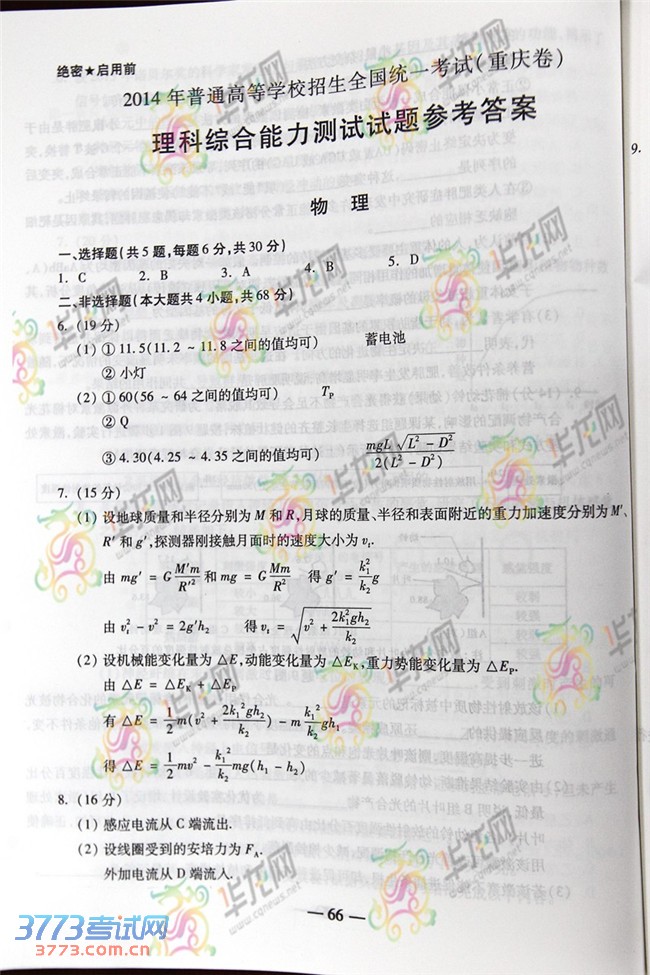 绝密★启用前
2014年普通高等学校招生全国统一考试(重庆卷)
理科综合能力测试试题参考答案
9.
物 理
一、选择题(共5题,每题6分,共30分)
1. C 2. B 3. A 4. B 5. D
二、非选择题(本大题共4小题,共68分)
6. (19分)
(1) ① 11.5(11.2 ~ 11.8之间的值均可) 蓄电池
② 小灯
(2) ① 60(56 ~ 64之间的值均可) T_P
② Q
③ 4.30(4.25 ~ 4.35之间的值均可) mgL√(L² - D²) / 2(L² - D²)
7. (15分)
(1) 设地球质量和半径分别为M和R,月球的质量、半径和表面附近的重力加速度分别为M′、
R′和g′,探测器刚接触月面时的速度大小为v_t.
由 mg′ = G M′m/R′² 和 mg = G Mm/R² 得 g′ = k₁²/k₂ g
由 v_t² - v² = 2g′h₂ 得 v_t = √(v² + 2k₁²gh₂/k₂)
(2) 设机械能变化量为△E,动能变化量为△E_K,重力势能变化量为△E_P.
由 △E = △E_K + △E_P
有 △E = 1/2 m(v² + 2k₁²gh₂/k₂) - m k₁²/k₂ gh₁
得 △E = 1/2 mv² - k₁²/k₂ mg(h₁ - h₂)
8. (16分)
(1) 感应电流从C端流出.
(2) 设线圈受到的安培力为F_A.
外加电流从D端流入.
— 66 —
华龙网
www.cqnews.net
3773考试网
3773.com.cn